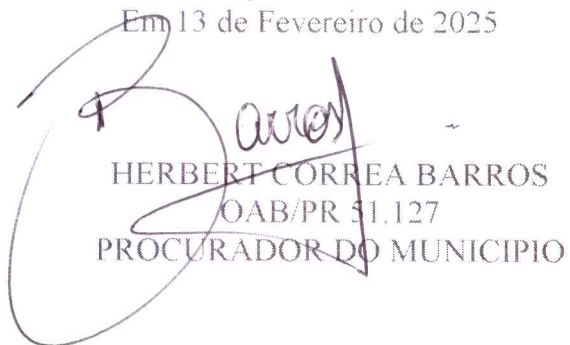 Em 13 de Fevereiro de 2025
Barros
HERBERT CORREA BARROS
OAB/PR 51.127
PROCURADOR DO MUNICIPIO